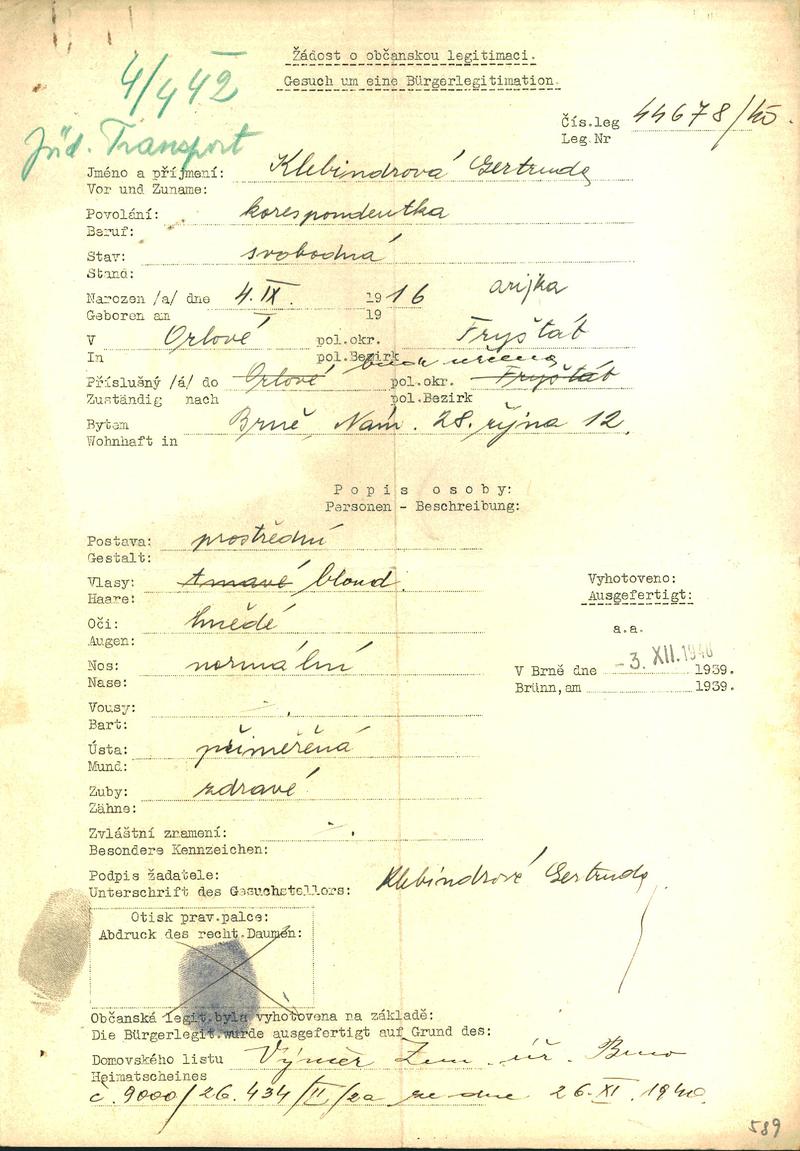 Žádost o občanskou legitimaci.
Gesuch um eine Bürgerlegitimation.
4/4 42
Jüd. Transport
Čís.leg 44678/40.
Leg.Nr
Jméno a příjmení: Klebindrová Gertruda
Vor und Zuname:
Povolání: korespondentka
Beruf:
Stav: svobodná
Stand:
arijka
Narozen /a/ dne 4.IX. 1916
Geboren am 19
V Orlové pol.okr. Fryštát
In pol.Bezirk
bude určena
Příslušný /á/ do Orlové pol.okr. Fryštát
Zuständig nach pol.Bezirk
Bytem Brně, Nám. 28. října 12.
Wohnhaft in
Popis osoby:
Personen - Beschreibung:
Postava: prostřední
Gestalt:
Vlasy: tmavé blond.
Haare:
Oči: hnědé
Augen:
Nos: normální
Nase:
Vousy: -.
Bart:
Ústa: přiměřená
Mund:
Zuby: zdravé
Zähne:
Zvláštní znamení: -.
Besondere Kennzeichen:
Vyhotoveno:
Ausgefertigt:
a.a.
V Brně dne -3. XII. 1940 1939.
Brünn, am 1939.
Podpis žadatele:
Unterschrift des Gesuchstellers: Klebindrová Gertruda
Otisk prav.palce:
Abdruck des recht.Daumen:
Občanská legit.byla vyhotovena na základě:
Die Bürgerlegit.wurde ausgefertigt auf Grund des:
Domovského listu Výměr Zem. úř. Brno
Heimatscheines
č. 9000/26.434/II/2a ze dne 26.XI.1940.
589